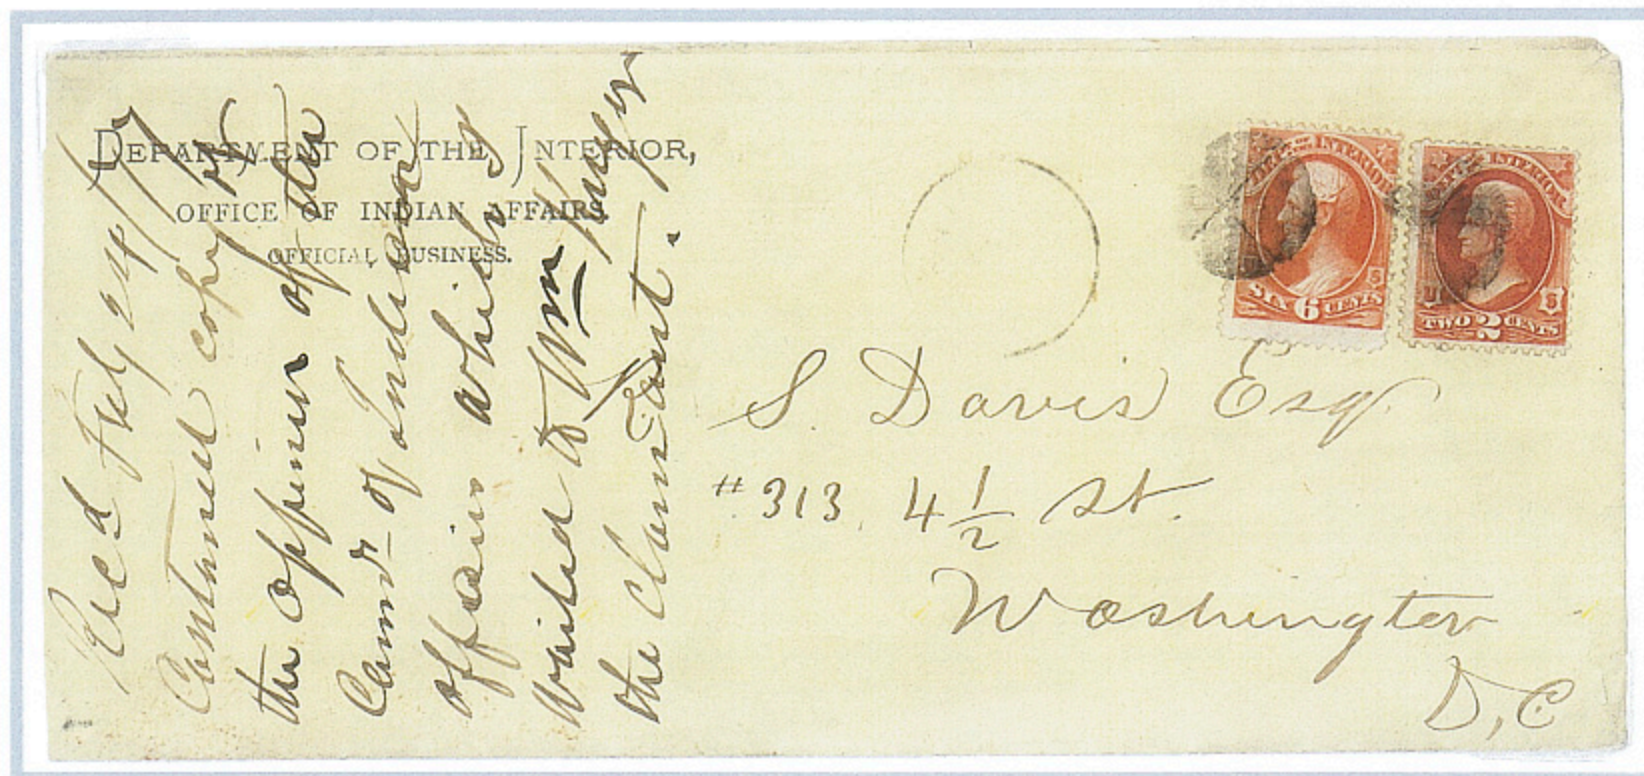 DEPARTMENT OF THE INTERIOR,
OFFICE OF INDIAN AFFAIRS.
OFFICIAL BUSINESS.
Recd Feby 24/77
Contained copy of
the oppinion of the
Comr of Indian
affairs which is
mailed to Wm
the Claim
DEPT. OF THE INTERIOR
U S
SIX 6 CENTS
DEPT. OF THE INTERIOR
U S
TWO 2 CENTS
S. Davis Esq.
#313. 4 1/2 St.
Washington
D,C